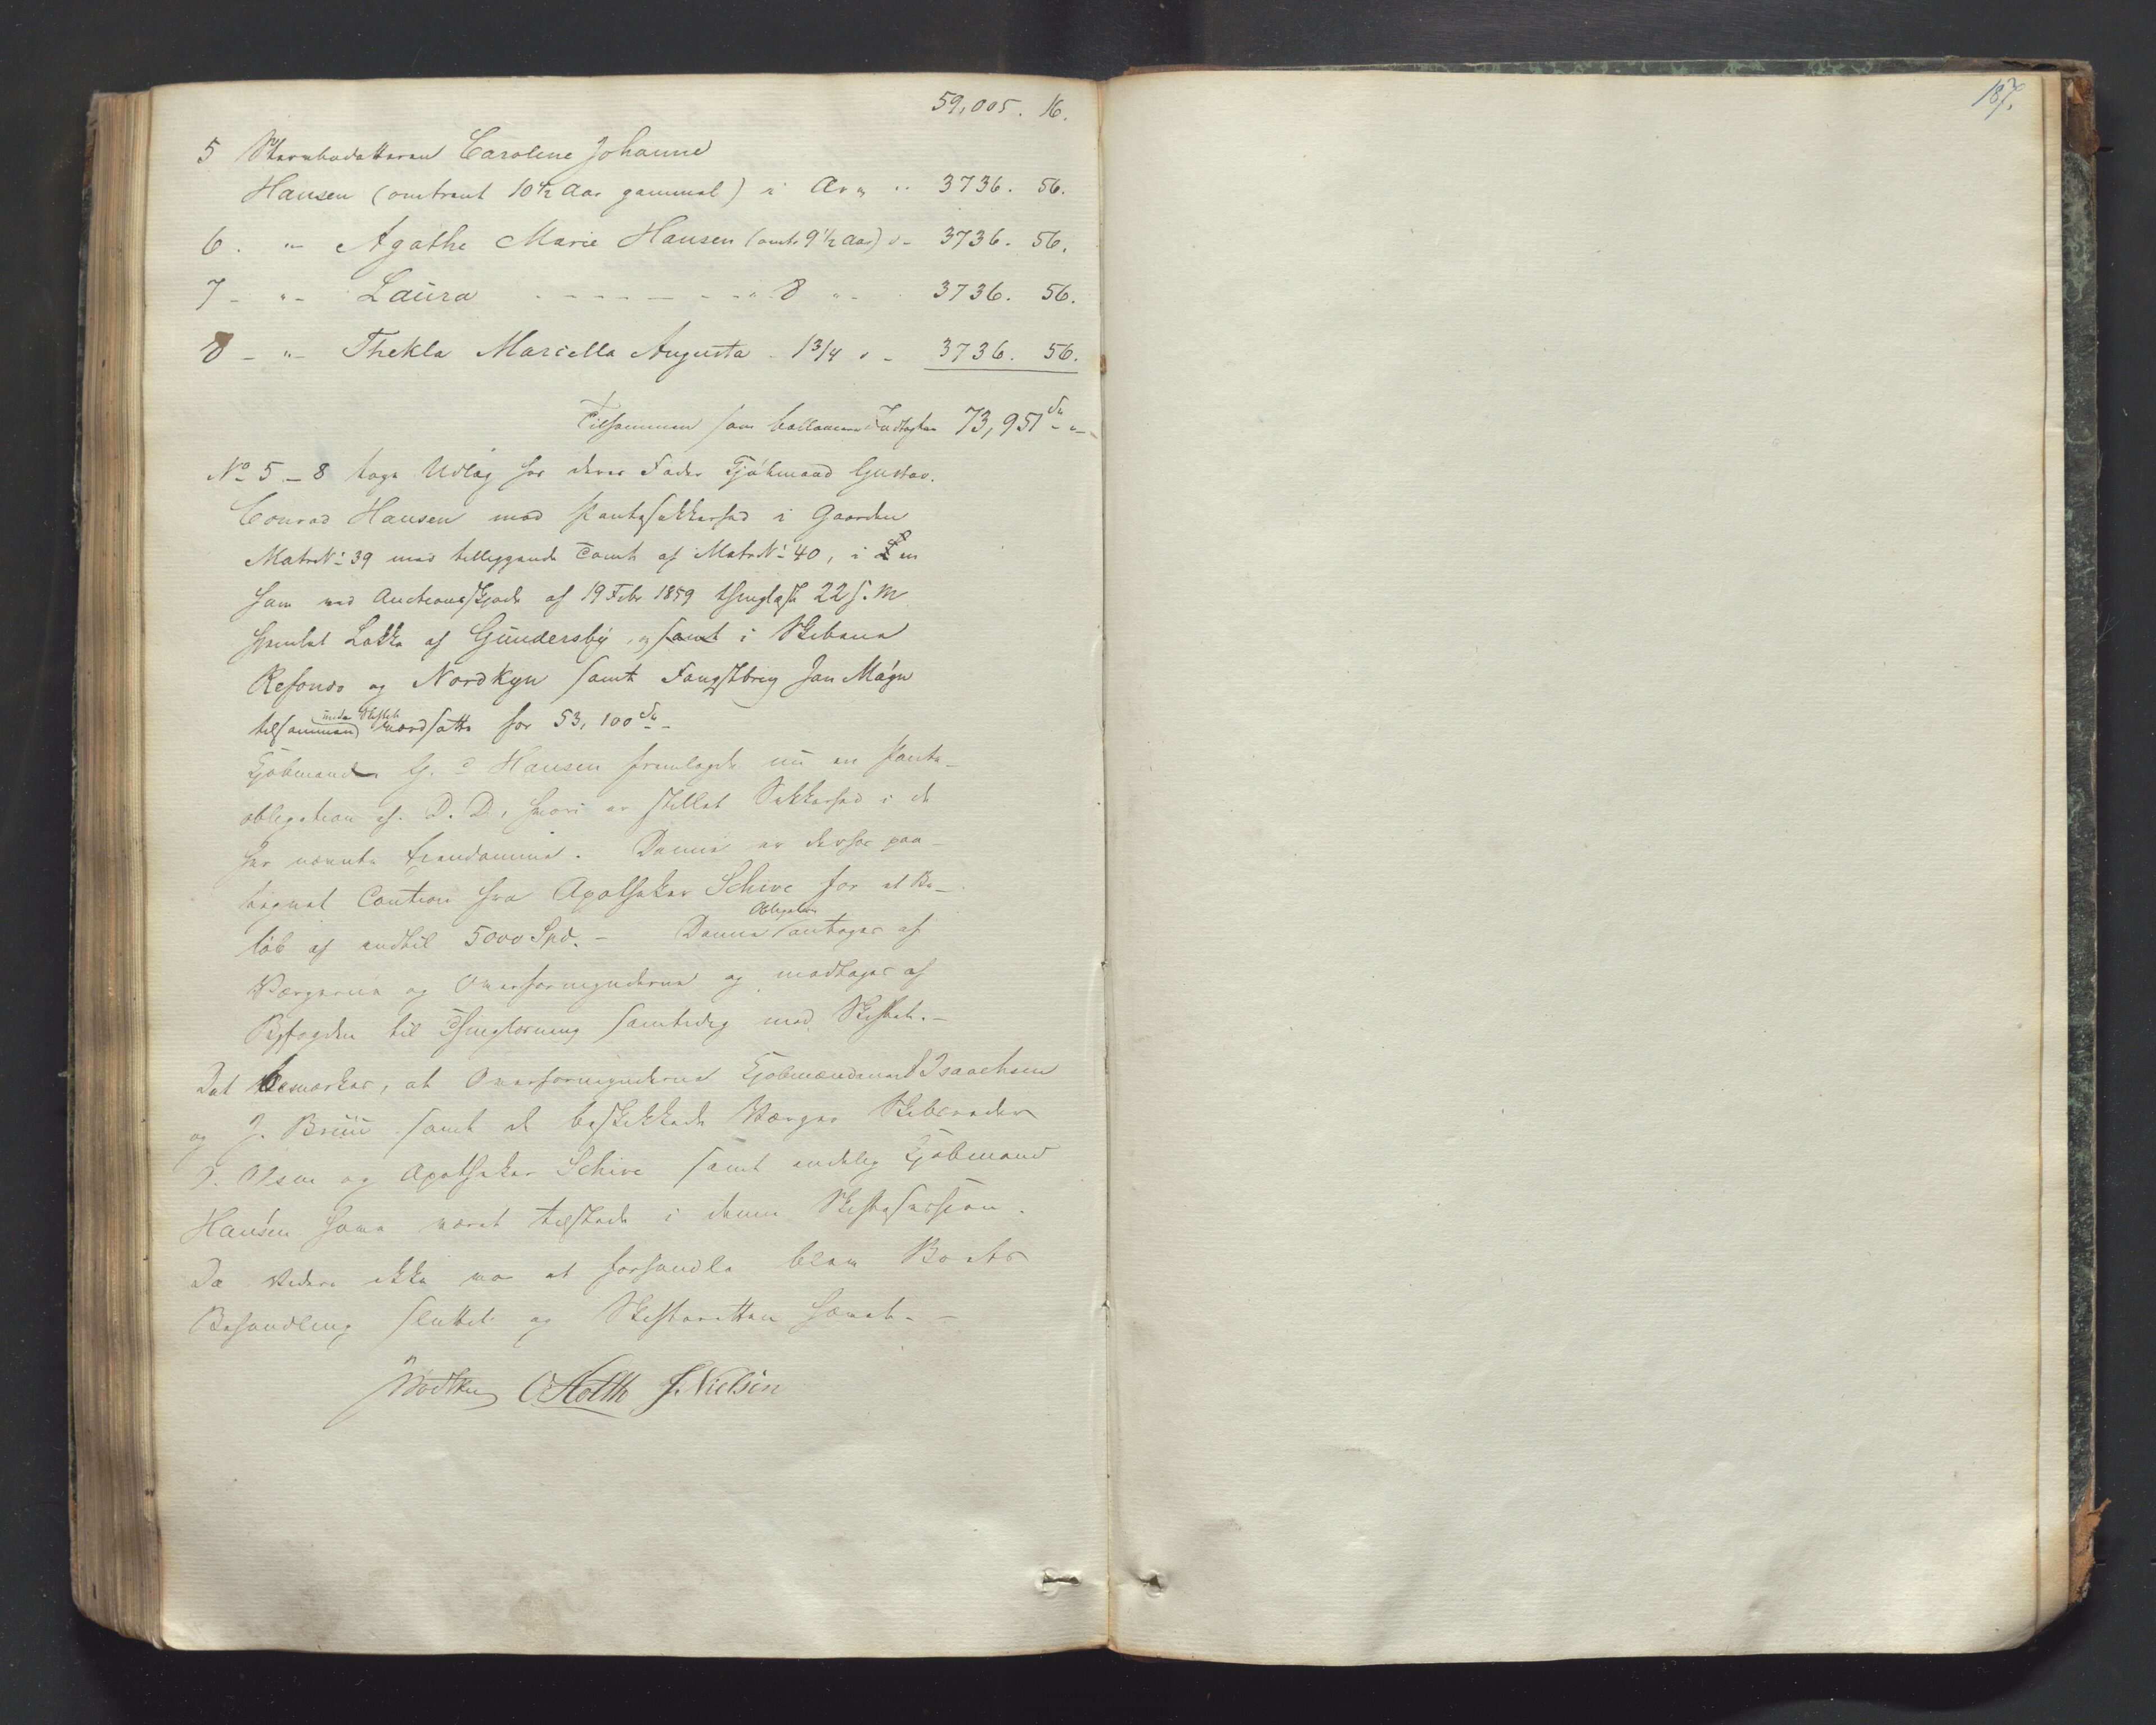 59,005. 16.
5 Stervbodatteren Caroline Johanne
Hansen (omtrent 10½ Aar gammel) i Arv " 3736. 56.
6. " Agathe Marie Hansen (omtr. 9½ Aar) " - 3736. 56.
7 - " - Laura - - - - - - - " 8 " - 3736. 56.
8 - " - Thekla Marcella Augusta - 1¾ " - 3736. 56.
Tilsammen som ballancerer Indtægten 73,951 " -
No 5 - 8 tage Udlæg hos deres Fader Kjøbmand Gustav
Conrad Hansen mod Pantesikkerhed i Gaarden
Matr No 39 med tilliggende Tomt af Matr No 40, i den
ham ved Auctionsskjøde af 19 Febr 1859 thinglæst 22 s. M
hjemlet Løkke af Gundersby, og samt i Skibene
Refondo og Nordkyn samt Fangstbrig Jan Mayn
tilsammen under Skiftet værdsatte for 53,100 -
Kjøbmand G. C Hansen fremlagde nu en Pante-
obligation af D. D., hvori er stillet Sikkerhed i de
her nævnte Eiendomme. Denne er derhos paa-
tegnet Caution fra Apotheker Schive for et Be-
løb af indtil 5000 Spd. - Denne Obligation antages af
Værgerne og Overformynderne og modtages af
Byfogden til Thinglæsning samtidig med Skiftet. -
Det bemærkes, at Overformynderne Kjøbmændene Isaachsen
og J. Bruu samt de beskikkede Værger Skibsreder
O. Olsen og Apotheker Schive samt endelig Kjøbmand
Hansen have været tilstede i denne Skiftesession.
Da videre ikke var at forhandle blev Boets
Behandling sluttet og Skifteretten hævet. -
Bødtker C Holth J. Nielsen
187.